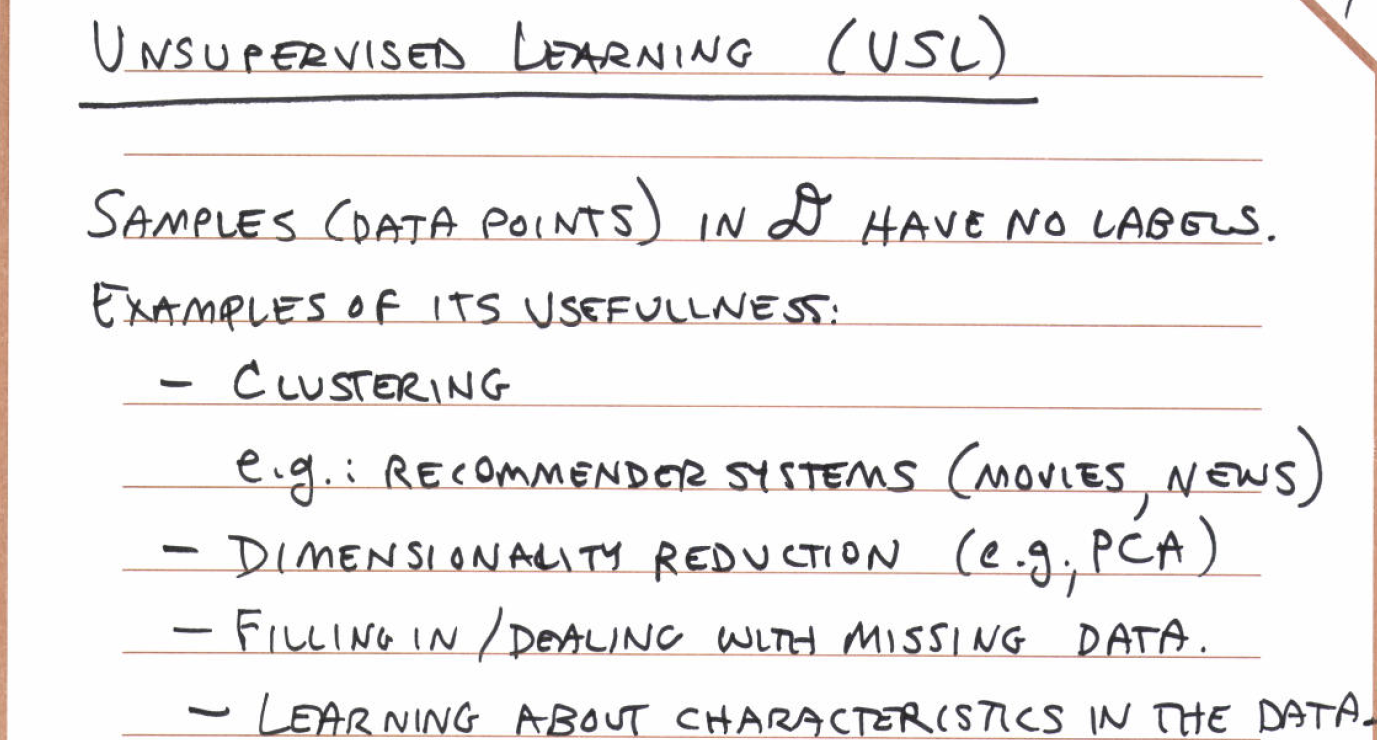 UNSUPERVISED LEARNING (USL)
SAMPLES (DATA POINTS) IN 𝒟 HAVE NO LABELS.
EXAMPLES OF ITS USEFULLNESS:
- CLUSTERING
e.g.: RECOMMENDER SYSTEMS (MOVIES, NEWS)
- DIMENSIONALITY REDUCTION (e.g., PCA)
- FILLING IN / DEALING WITH MISSING DATA.
- LEARNING ABOUT CHARACTERISTICS IN THE DATA.